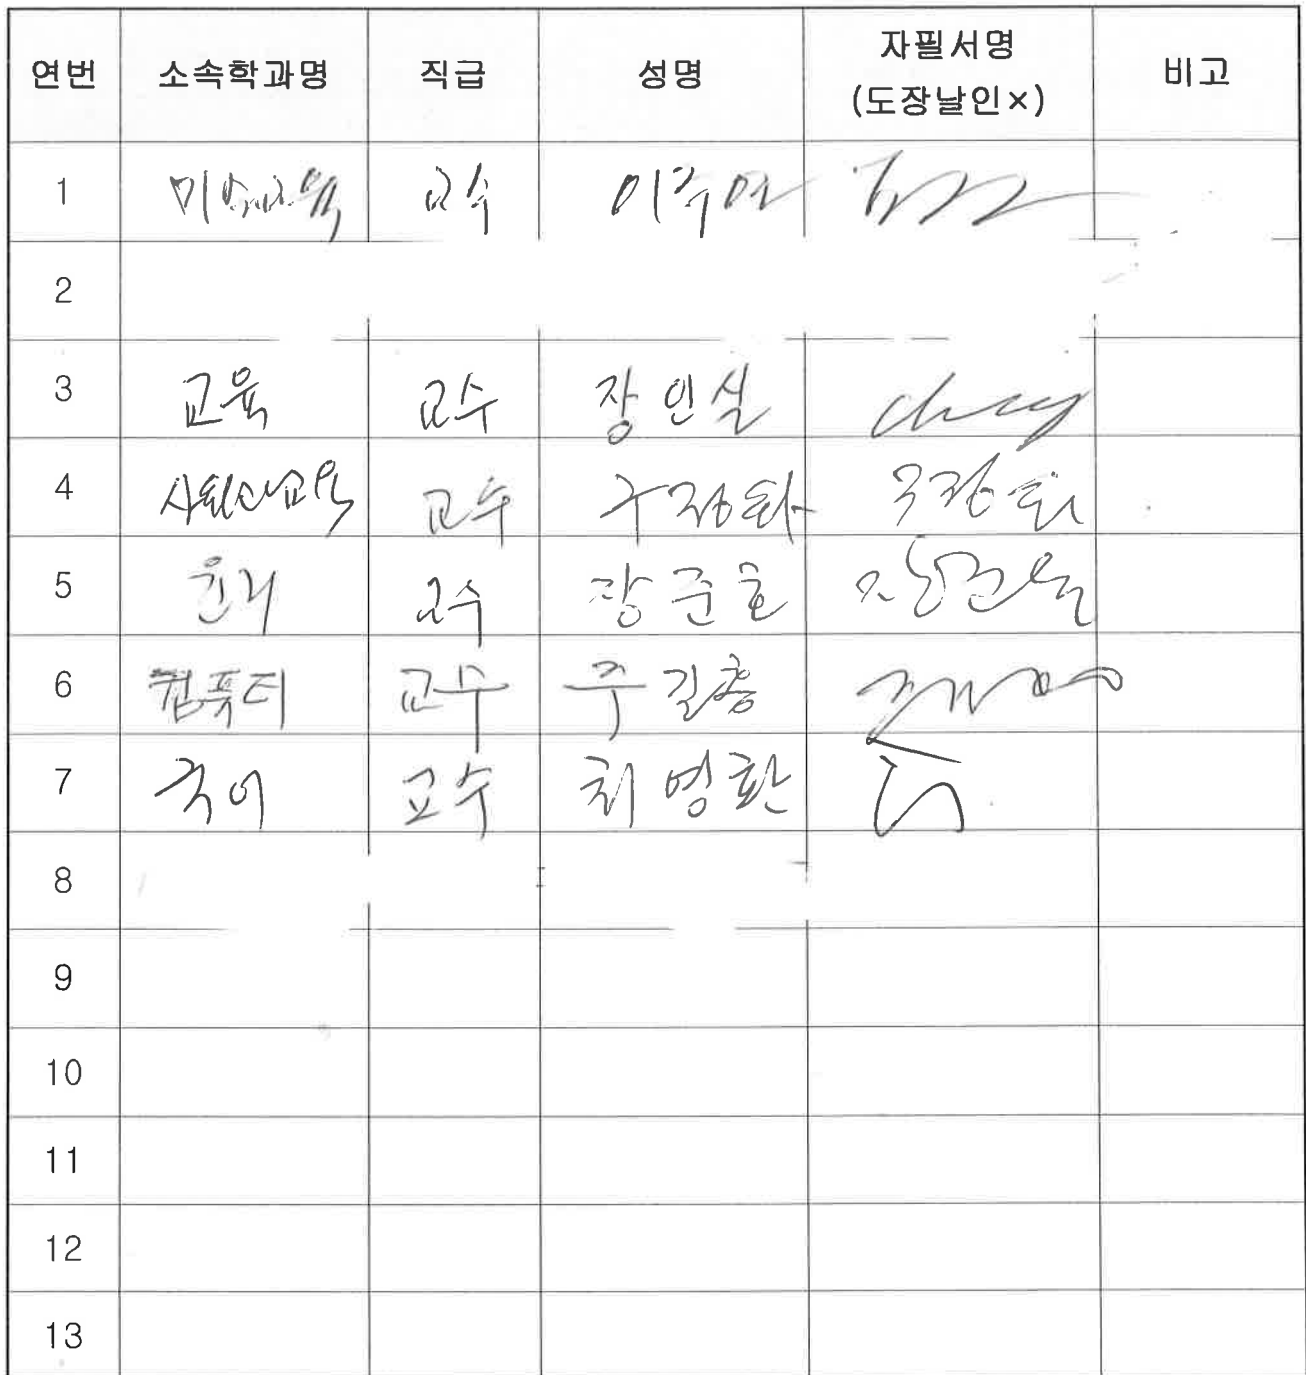 연번 소속학과명 직급 성명 자필서명 비고
(도장날인×)
1 미술교육 교수 이주연
2
3 교육 교수 장인실
4 사회과교육 교수 구정화 구정화
5 윤리 교수 장준호
6 컴퓨터 교수 주길홍
7 국어 교수 최영환
8
9
10
11
12
13